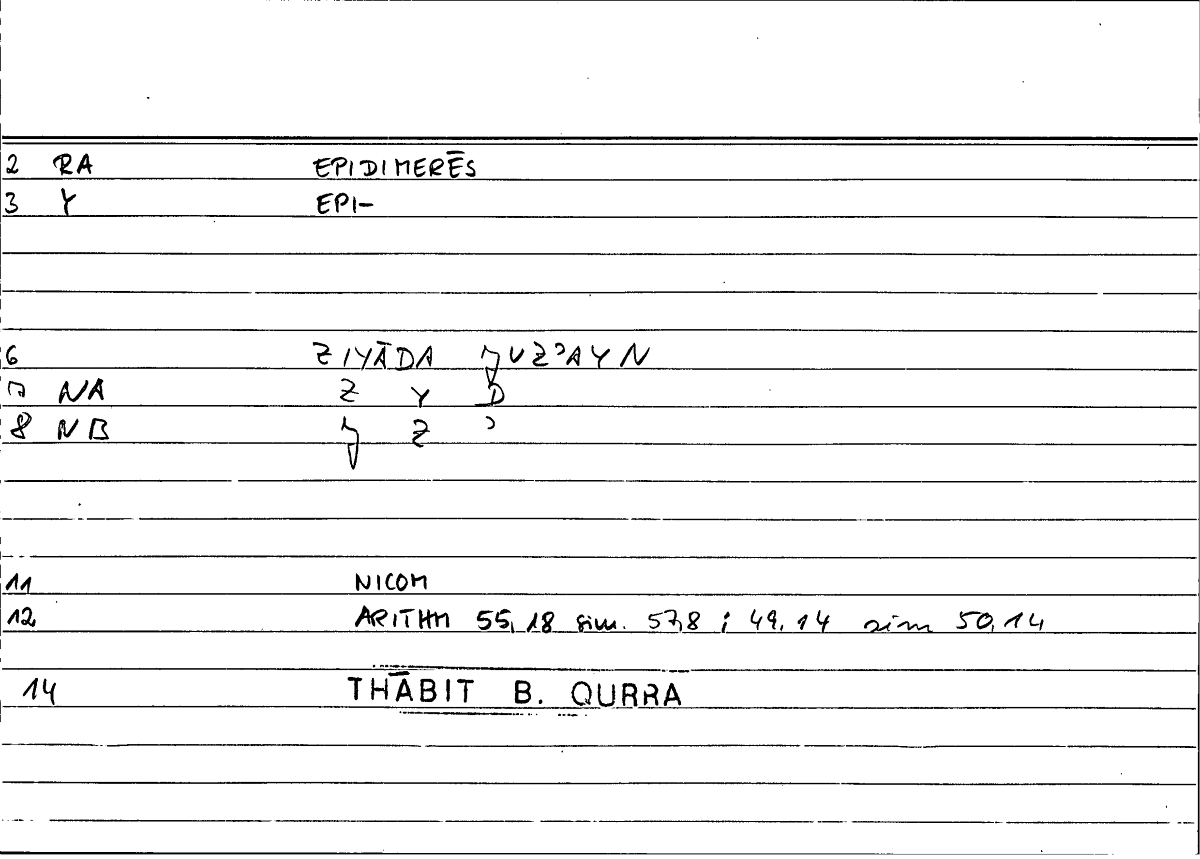 2 RA EPIDIMERĒS
3 Y EPI-
6 ZIYĀDA ǧUZʾAYN
7 NA Z Y D
8 NB ǧ Z ʾ
11 NICOM
12 ARITHM 55,18 sim. 57,8 ; 49,14 sim 50,14
14 THĀBIT B. QURRA